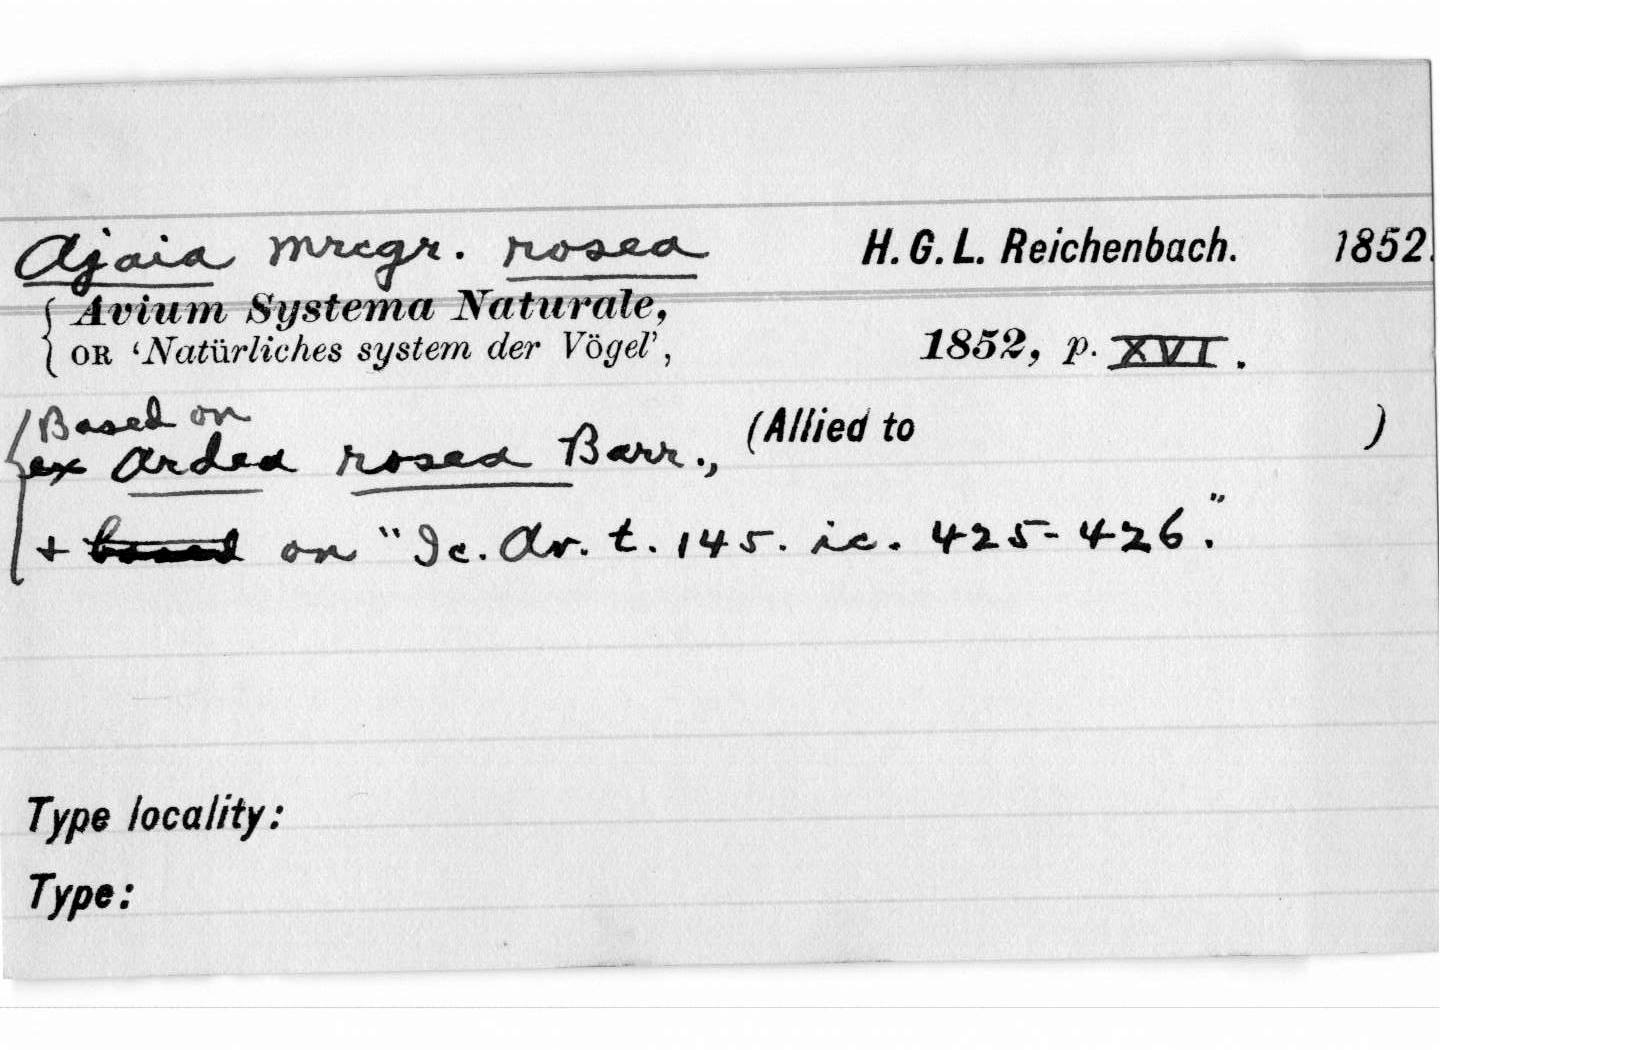 Ajaia Mrcgr. rosea H. G. L. Reichenbach. 1852.
{ Avium Systema Naturale,
OR ‘Natürliches system der Vögel’, 1852, p. XVI.
Based on
ex Ardea rosea Barr., (Allied to )
+ based on "Ic. Av. t. 145. ic. 425-426."
Type locality:
Type: